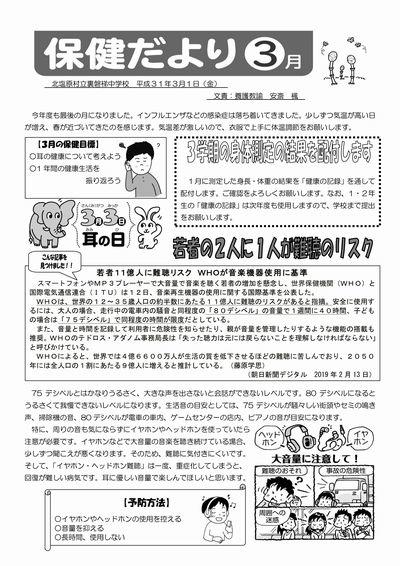 保健だより ３月
北塩原村立裏磐梯中学校　平成３１年３月１日（金）
文責：養護教諭　安斎　楓
今年度も最後の月になりました。インフルエンザなどの感染症は落ち着いてきました。少しずつ気温が高い日
が増え、春が近づいてきたのを感じます。気温差が激しいので、衣服で上手に体温調節をお願いします。
【３月の保健目標】
○耳の健康について考えよう
○１年間の健康生活を
振り返ろう
３学期の身体測定の結果を配付します
１月に測定した身長・体重の結果を「健康の記録」を通して
配付します。ご確認をよろしくお願いします。なお、１・２年
生の「健康の記録」は次年度も使用しますので、学校まで提出
をお願いします。
３月３日
耳の日
若者の２人に１人が難聴のリスク
こんな記事を
見つけました！！
若者１１億人に難聴リスク　ＷＨＯが音楽機器使用に基準
スマートフォンやＭＰ３プレーヤーで大音量で音楽を聴く若者の増加を懸念し、世界保健機関（ＷＨＯ）と
国際電気通信連合（ＩＴＵ）は１２日、音楽再生機器の使用に関する国際基準を公表した。
ＷＨＯは、世界の１２～３５歳人口の約半数にあたる１１億人に難聴のリスクがあると指摘。安全に使用する
には、大人の場合、走行中の電車内の騒音と同程度の「８０デシベル」の音量で１週間に４０時間、子ども
の場合は「７５デシベル」で同程度の時間が限度だとしている。
また、音量と時間を記録して利用者に危険性を知らせたり、親が音量を管理したりするような機能の搭載も
推奨。ＷＨＯのテドロス・アダノム事務局長は「失った聴力は元には戻らないことを理解しなければならない」
と呼びかけている。
ＷＨＯによると、世界では４億６６００万人が生活の質を低下させるほどの難聴に苦しんでおり、２０５０
年には全人口の１割にあたる９億人に増えると推計している。（藤原学思）
（朝日新聞デジタル　2019 年 2 月 13 日）
75 デシベルとはかなりうるさく、大きな声を出さないと会話ができないレベルです。80 デシベルになると
うるさくて我慢できないレベルになります。生活音の目安としては、75 デシベルが騒々しい街頭やセミの鳴き
声、掃除機の音、80 デシベルが電車の車内、ゲームセンターの店内、ピアノの音が目安になります。
特に、周りの音も気にならずにイヤホンやヘッドホンを使っていたら
注意が必要です。イヤホンなどで大音量の音楽を聴き続けている場合、
少しずつ聞こえが悪くなります。そのため、難聴に気付きにくいです。
そして、「イヤホン・ヘッドホン難聴」は一度、重症化してしまうと、
回復が難しい病気です。耳に優しい音量で楽しんでほしいと思います。
【予防方法】
○イヤホンやヘッドホンの使用を控える
○音量を抑える
○長時間、使用しない
ヘッドホン
イヤホン
大音量に注意して！
難聴のおそれ
事故の危険性
周囲への
迷惑